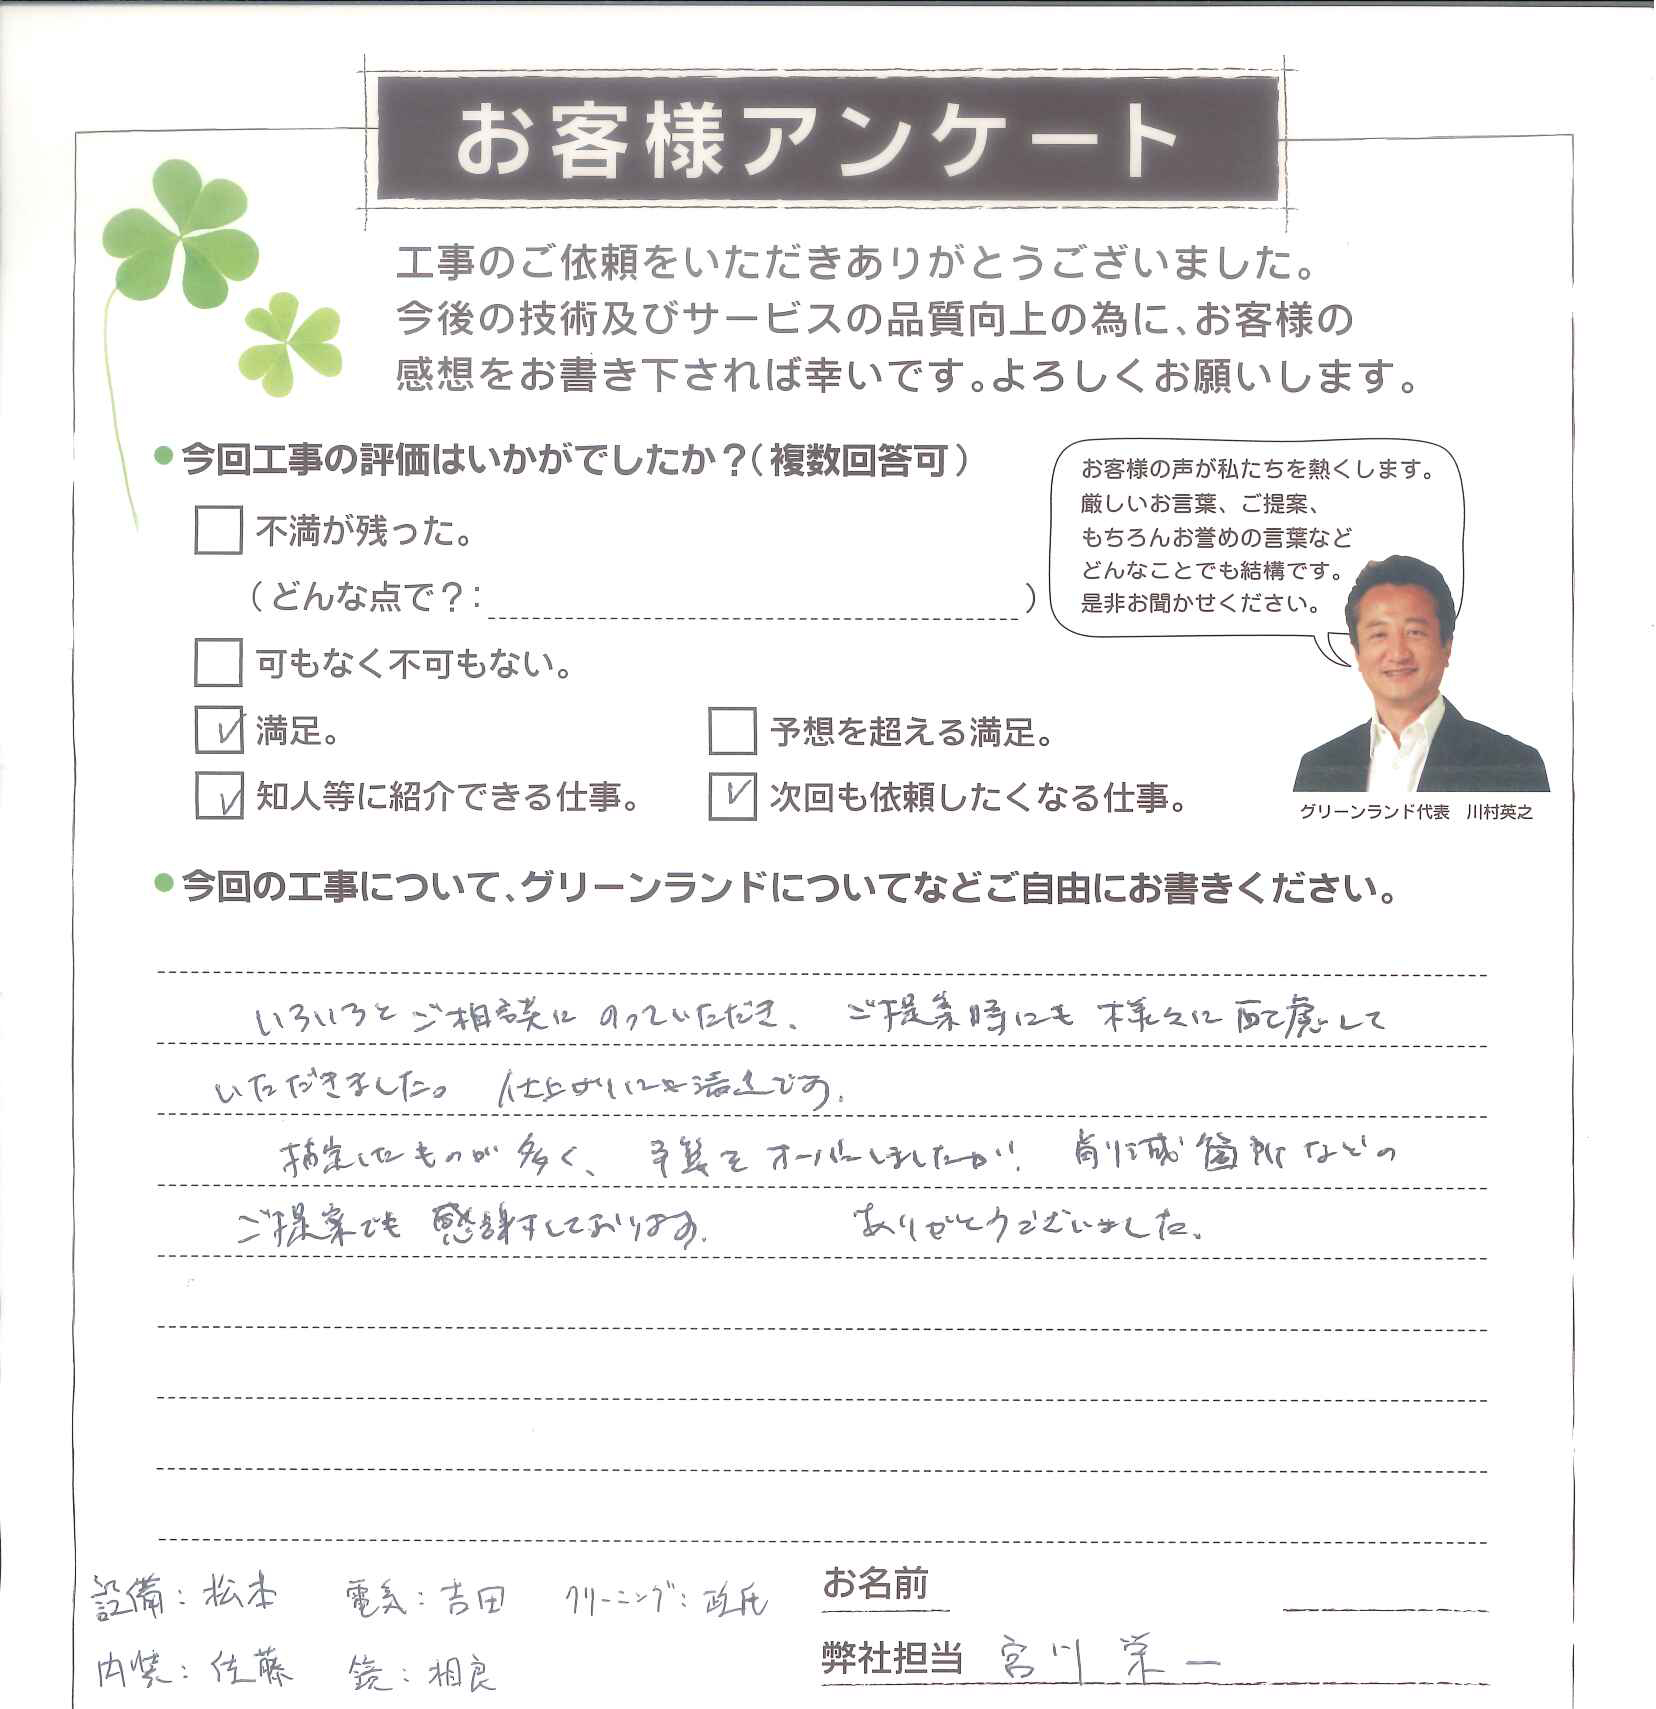 お客様アンケート
工事のご依頼をいただきありがとうございました。
今後の技術及びサービスの品質向上の為に、お客様の
感想をお書き下されば幸いです。よろしくお願いします。
今回工事の評価はいかがでしたか？（複数回答可）
不満が残った。
（どんな点で？：　）
可もなく不可もない。
満足。
予想を超える満足。
知人等に紹介できる仕事。
次回も依頼したくなる仕事。
お客様の声が私たちを熱くします。
厳しいお言葉、ご提案、
もちろんお誉めの言葉など
どんなことでも結構です。
是非お聞かせください。
グリーンランド代表　川村英之
今回の工事について、グリーンランドについてなどご自由にお書きください。
いろいろとご相談にのっていただき、ご提案時にも様々に配慮して
いただきました。仕上がりにも満足です。
指定したものが多く、予算をオーバーしましたが、削減箇所などの
ご提案でも感謝しております。ありがとうございました。
設備：松本　電気：吉田　クリーニング：
内装：佐藤　鏡：相良
お名前
弊社担当　宮川　栄一